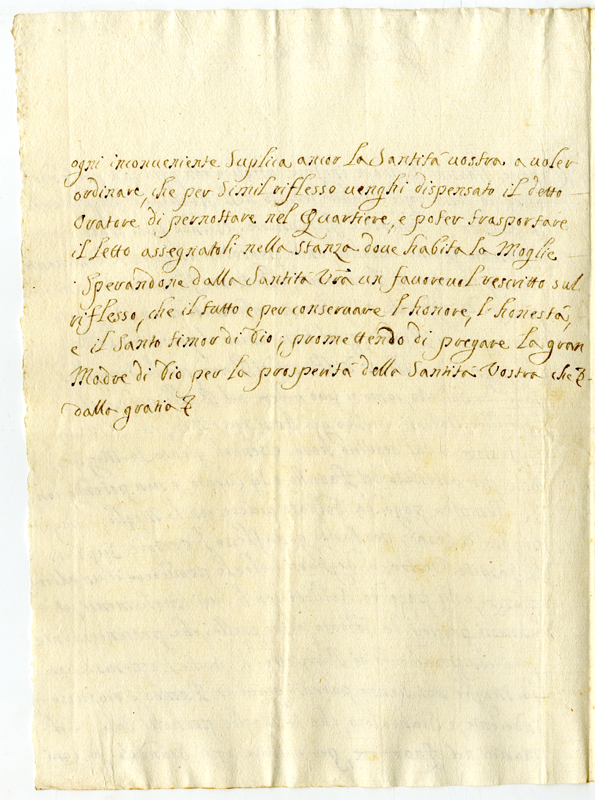 ogni inconueniente Suplica ancor La Santità uostra a uoler
ordinare, che per Simil riflesso uenghi dispensato il detto
Oratore di pernottare nel Quartiere, e poter trasportare
il Letto assegnatoli nella Stanza doue habita La Moglie
Sperandone dalla Santità Vrã un fauoreuol rescritto sul
riflesso, che il tutto e per conseruare l'honore, l'honestà,
e il Santo timor di Dio; promettendo di pregare La gran
Madre di Dio per La prosperità della Santità Vostra che
dalla gratia